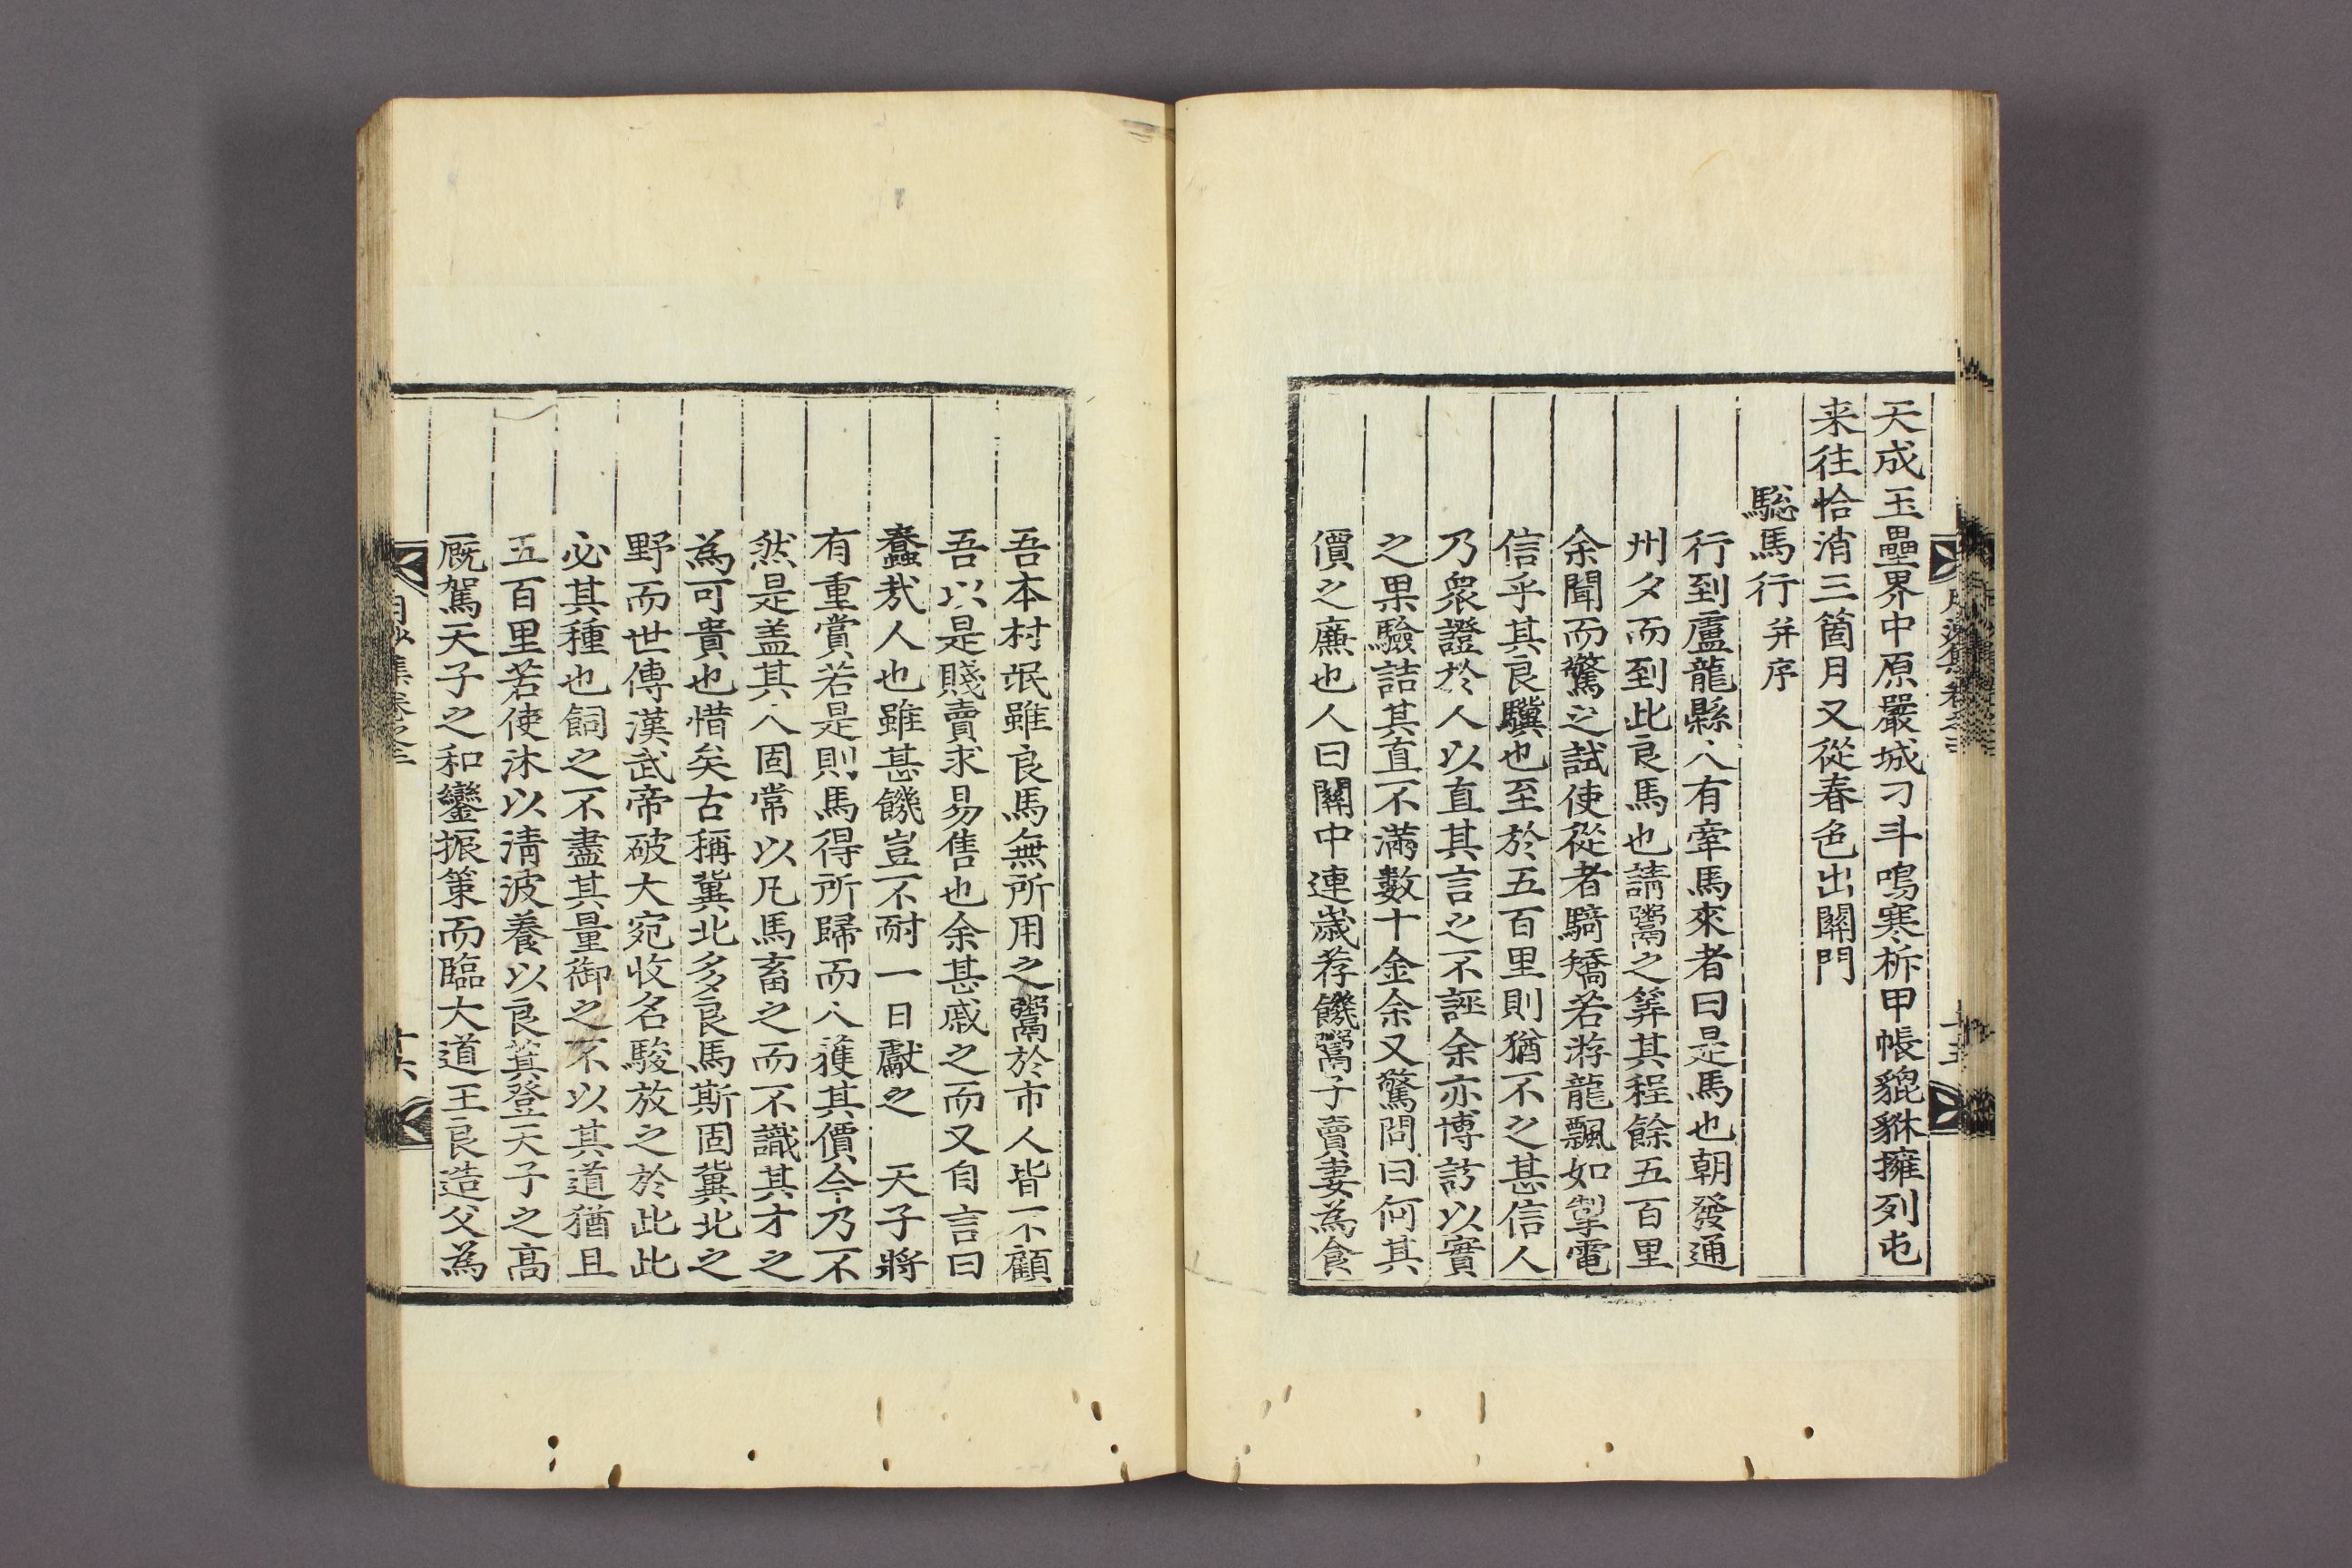 天成玉壘界中原嚴城刁斗鳴寒柝甲帳貔貅擁列屯
来往恰消三箇月又從春色出關門
驄馬行并序
行到盧龍縣人有牽馬來者曰是馬也朝發通
州夕而到此良馬也請鬻之筭其程餘五百里
余聞而驚之試使從者騎矯若游龍飄如掣電
信乎其良驥也至於五百里則猶不之甚信人
乃衆證於人以直其言之不誣余亦博訪以實
之果驗詰其直不滿數十金余又驚問曰何其
價之廉也人曰關中連歲荐饑鬻子賣妻為食
吾本村氓雖良馬無所用之鬻於市人皆不顧
吾以是賤賣求易售也余甚戚之而又自言曰
蠢哉人也雖甚饑豈不耐一日獻之 天子將
有重賞若是則馬得所歸而人獲其價今乃不
然是盖其人固常以凡馬畜之而不識其才之
為可貴也惜矣古稱冀北多良馬斯固冀北之
野而世傳漢武帝破大宛收名駿放之於此此
必其種也飼之不盡其量御之不以其道猶且
五百里若使沐以清波養以良萁登天子之高
厩駕天子之和鑾振策而臨大道王良造父為
月沙集卷之三
十六